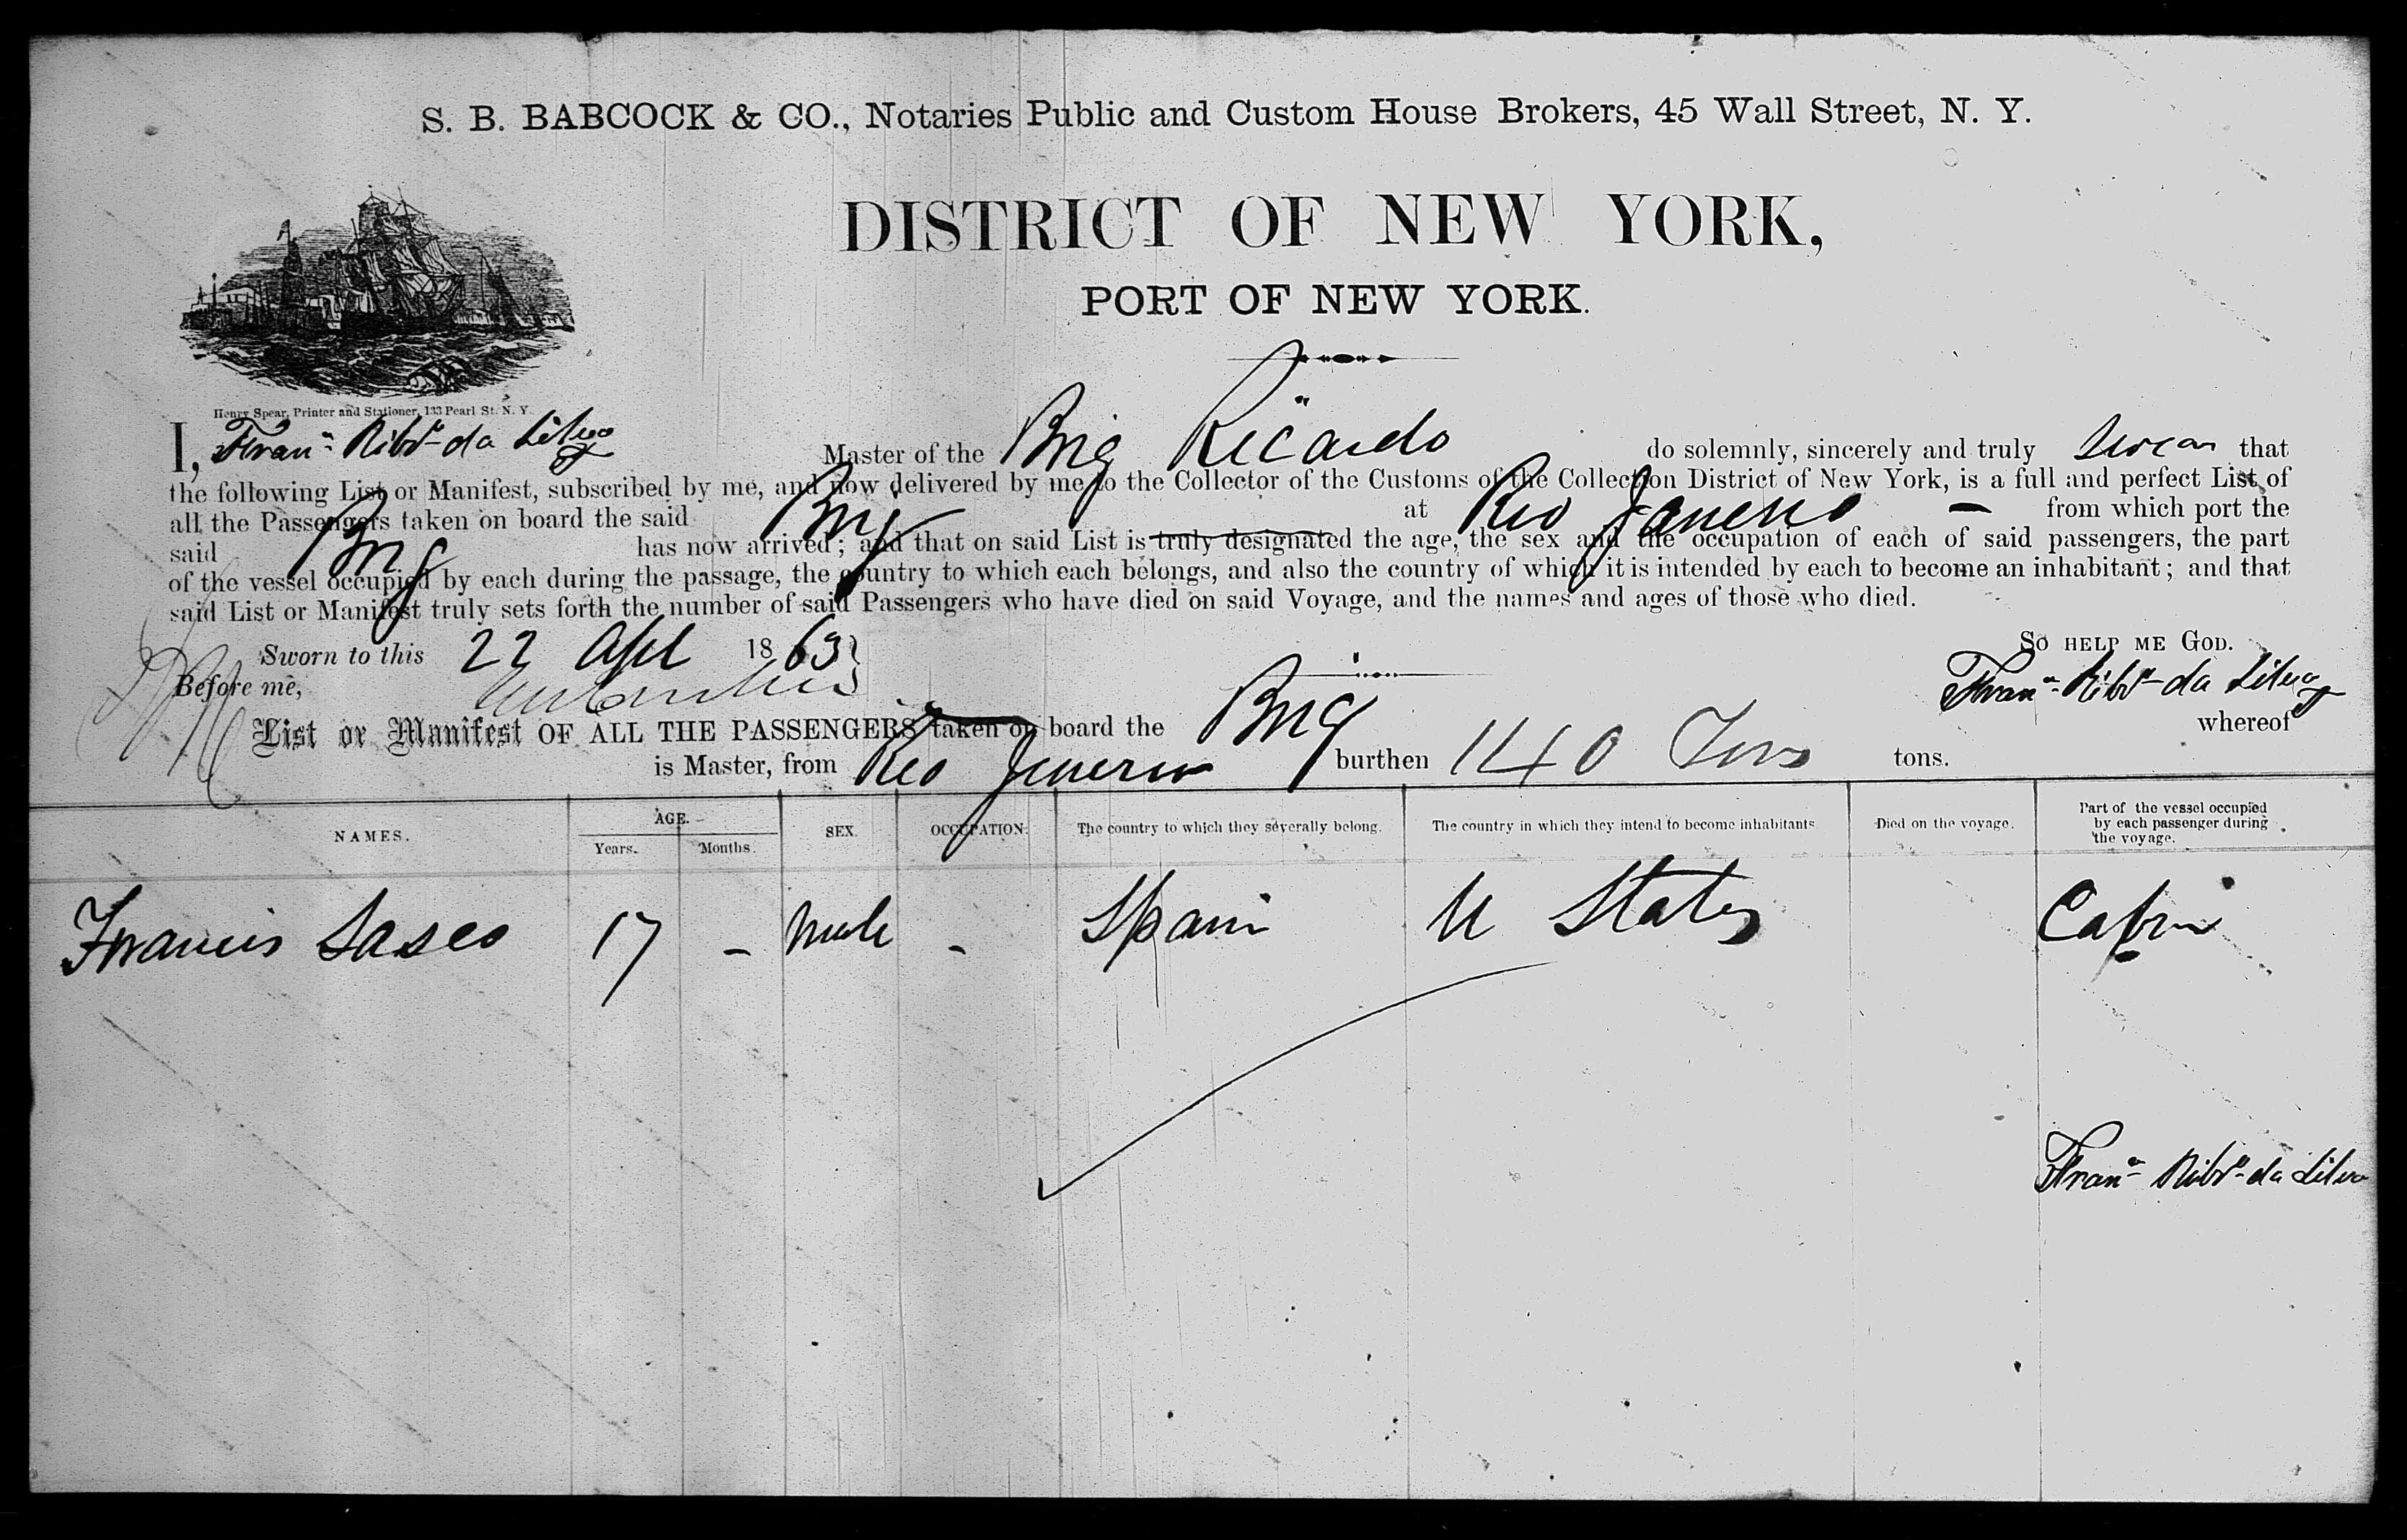 S. B. BABCOCK & CO., Notaries Public and Custom House Brokers, 45 Wall Street, N. Y.
DISTRICT OF NEW YORK,
PORT OF NEW YORK.
Henry Spear, Printer and Stationer, 133 Pearl St. N. Y.
I, Franco Ribro da Silva Master of the Brig Ricardo do solemnly, sincerely and truly swear that
the following List or Manifest, subscribed by me, and now delivered by me to the Collector of the Customs of the Collection District of New York, is a full and perfect List of
all the Passengers taken on board the said Brig at Rio Janeiro — from which port the
said Brig has now arrived; and that on said List is truly designated the age, the sex and the occupation of each of said passengers, the part
of the vessel occupied by each during the passage, the country to which each belongs, and also the country of which it is intended by each to become an inhabitant; and that
said List or Manifest truly sets forth the number of said Passengers who have died on said Voyage, and the names and ages of those who died.
Sworn to this 22 Apl 1863 } SO HELP ME GOD.
Before me, Franco Ribro da Silva
List or Manifest OF ALL THE PASSENGERS taken on board the Brig whereof
is Master, from Rio Janeiro burthen 140 Tons tons.
NAMES. AGE. Years. Months. SEX. OCCUPATION. The country to which they severally belong. The country in which they intend to become inhabitants Died on the voyage. Part of the vessel occupied by each passenger during the voyage.
Francis Sasco 17 - Male - Spain U States Cabin
Franco Ribro da Silva